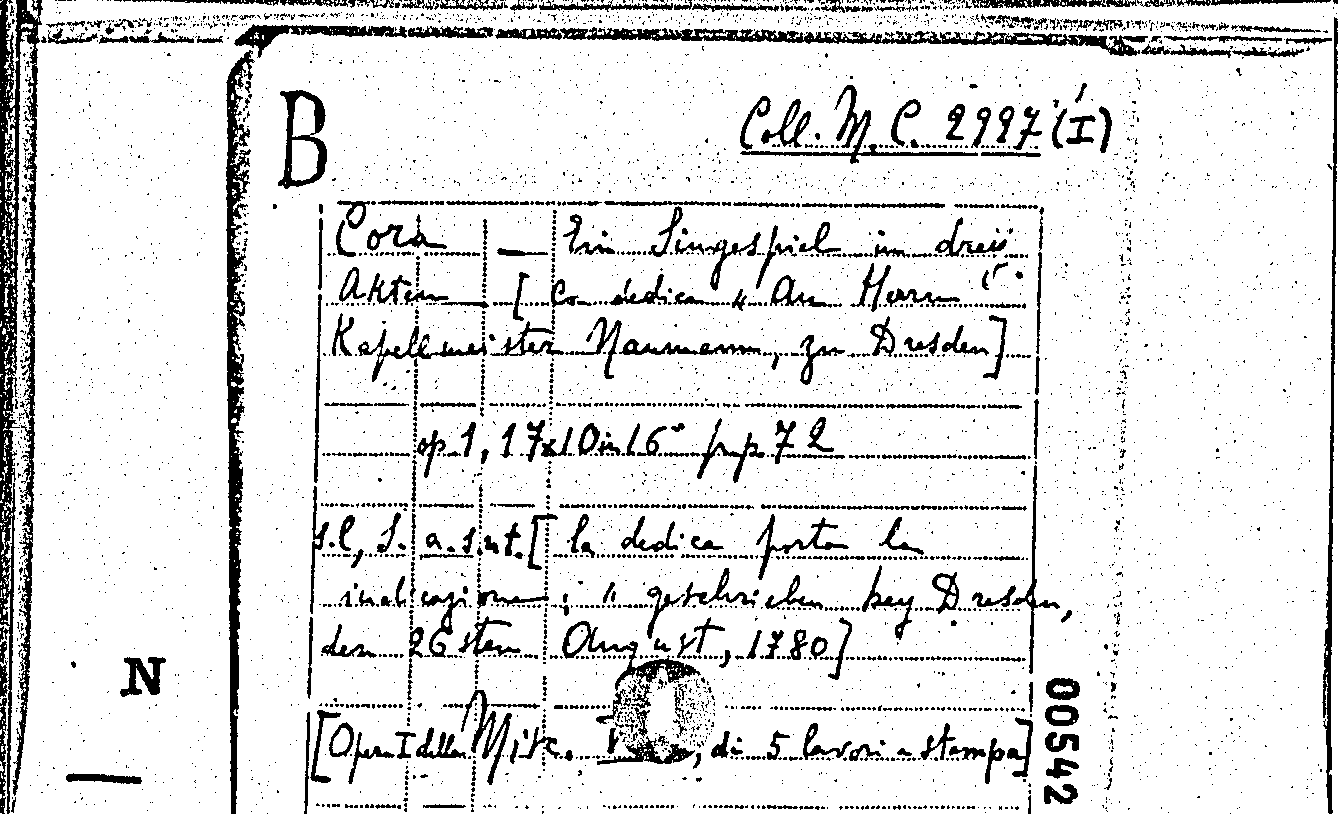 B
Coll. M. C. 2997 (I)
Cora — Ein Singespiel in dreii
Akten [Co dedica "An Herrn
Kapellmeister Naumann, zu Dresden]
op. 1, 17x10 in 16° pp. 72
s.l, s. a. s.nt. [la dedica porta la
indicazione: "geschrieben bey Dresden,
den 26sten August, 1780]
N
[Opera I della Misc. , di 5 lavori a stampa]
00542